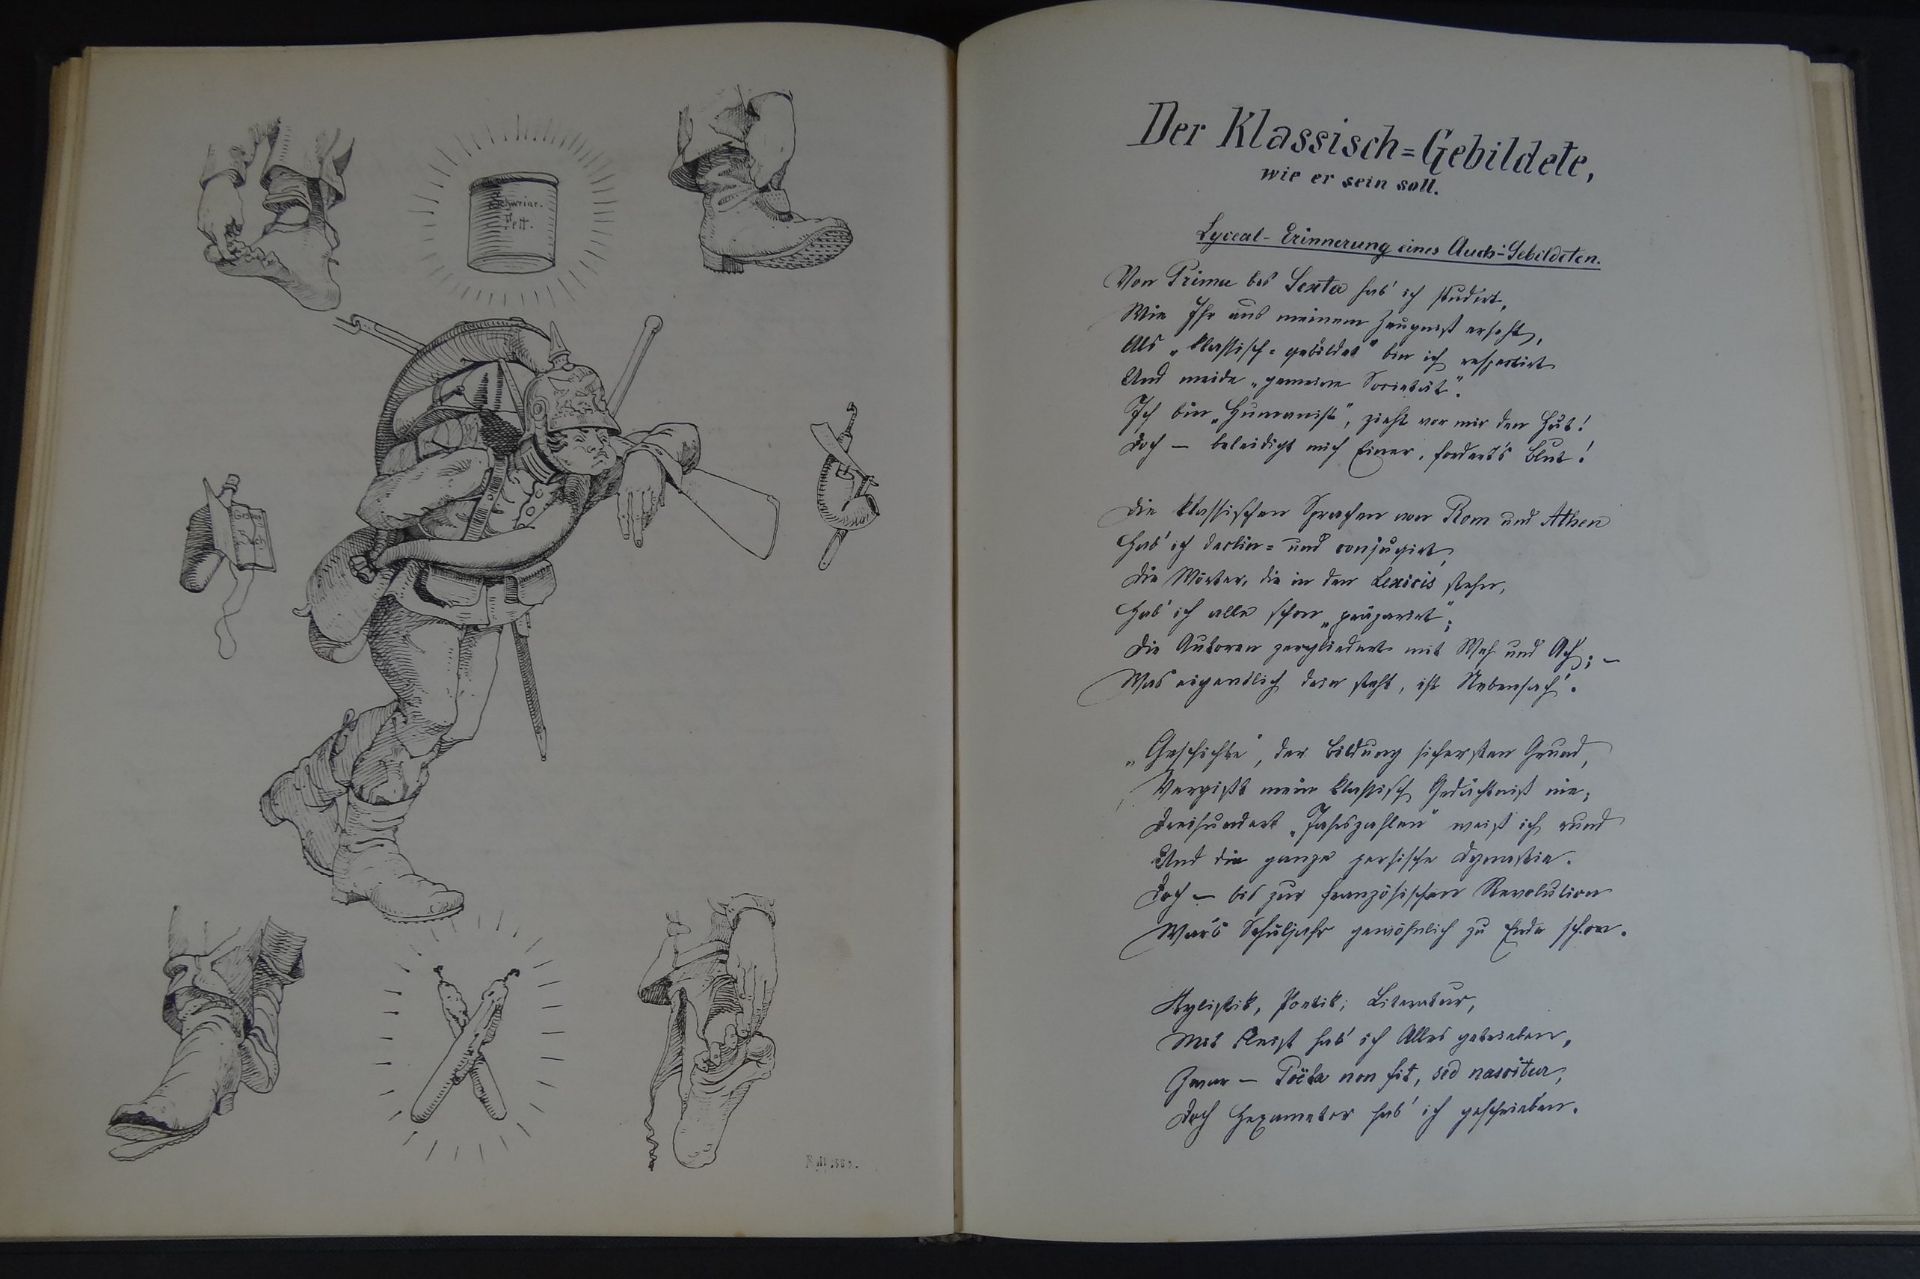 Schweine-
Fett.
Der Klassisch=Gebildete,
wie er sein soll.
Lyceal-Erinnerung eines Auch-Gebildeten.
Von Prima bis Sexta hab' ich studirt,
Wie Ihr aus meinem Zeugniß erseht,
Als „klassisch=gebildet" bin ich respectirt
Und meide „gemeine Societät".
Ich bin „Humanist", zieht vor mir den Hut!
Doch — beleidigt mich Einer, fordert's Blut!
Die klassischen Sprachen von Rom und Athen
Hab' ich declin= und conjugirt,
Die Wörter, die in den Lexicis stehn,
Hab' ich alle schon „präparirt";
Die Autoren zergliedert mit Weh und Ach; —
Was eigentlich drin steht, ist Nebensach'.
„Geschichte", der Bildung sichersten Grund,
Vergißt mein klassisch Gedächtniß nie;
Dreihundert „Jahrszahlen" weiß ich rund
Und die ganze persische Dynastie.
Doch — bis zur französischen Revolution
War's Schuljahr gewöhnlich zu Ende schon.
Stylistik, Poetik, Literatur,
Mit Fleiß hab' ich Alles getrieben,
Zwar — Poëta non fit, sed nascitur,
Doch Hexameter hab' ich geschrieben.